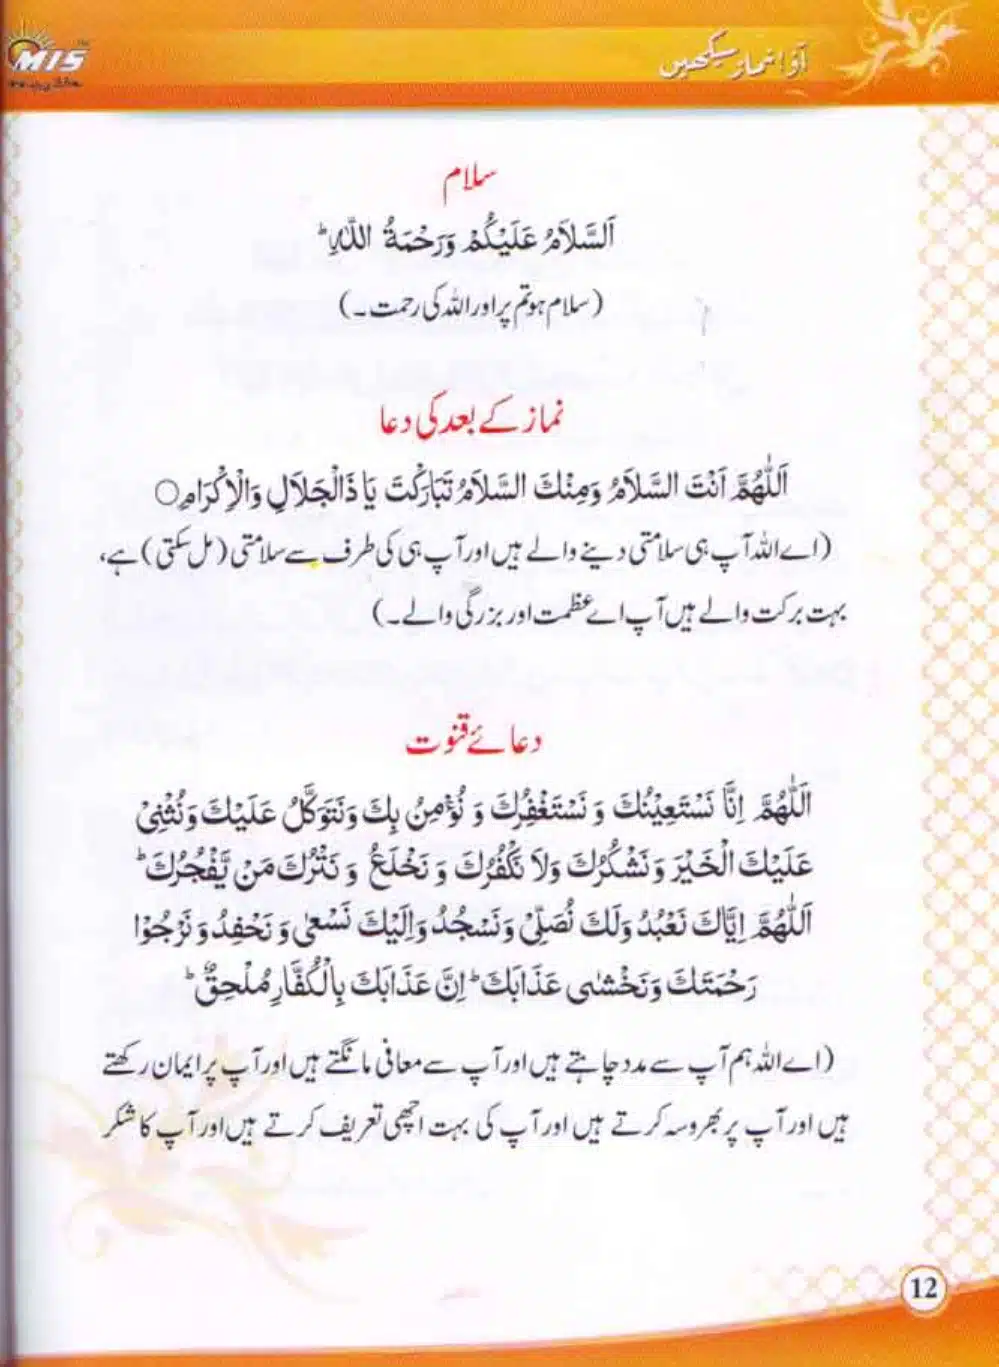 آؤ! نماز سیکھیں
MIS
سلام
اَلسَّلاَمُ عَلَیْکُمْ وَرَحْمَۃُ اللّٰہِ ؕ
(سلام ہو تم پر اور اللہ کی رحمت۔)
نماز کے بعد کی دعا
اَللّٰھُمَّ اَنْتَ السَّلاَمُ وَمِنْکَ السَّلاَمُ تَبَارَکْتَ یَا ذَالْجَلَالِ وَالْاِکْرَامِ○
(اے اللہ آپ ہی سلامتی دینے والے ہیں اور آپ ہی کی طرف سے سلامتی (مل سکتی) ہے،
بہت برکت والے ہیں آپ اے عظمت اور بزرگی والے۔)
دعائے قنوت
اَللّٰھُمَّ اِنَّا نَسْتَعِیْنُکَ وَ نَسْتَغْفِرُکَ وَ نُؤْمِنُ بِکَ وَنَتَوَکَّلُ عَلَیْکَ وَنُثْنِیْ
عَلَیْکَ الْخَیْرَ وَنَشْکُرُکَ وَلاَ نَکْفُرُکَ وَ نَخْلَعُ وَ نَتْرُکَ مَنْ یَّفْجُرُکَ ؕ
اَللّٰھُمَّ اِیَّاکَ نَعْبُدُ وَلَکَ نُصَلِّیْ وَنَسْجُدُ وَاِلَیْکَ نَسْعٰی وَ نَحْفِدُ وَنَرْجُوْا
رَحْمَتَکَ وَنَخْشٰی عَذَابَکَ ؕ اِنَّ عَذَابَکَ بِالْکُفَّارِ مُلْحِقٌ ؕ
(اے اللہ ہم آپ سے مدد چاہتے ہیں اور آپ سے معافی مانگتے ہیں اور آپ پر ایمان رکھتے
ہیں اور آپ پر بھروسہ کرتے ہیں اور آپ کی بہت اچھی تعریف کرتے ہیں اور آپ کا شکر
12